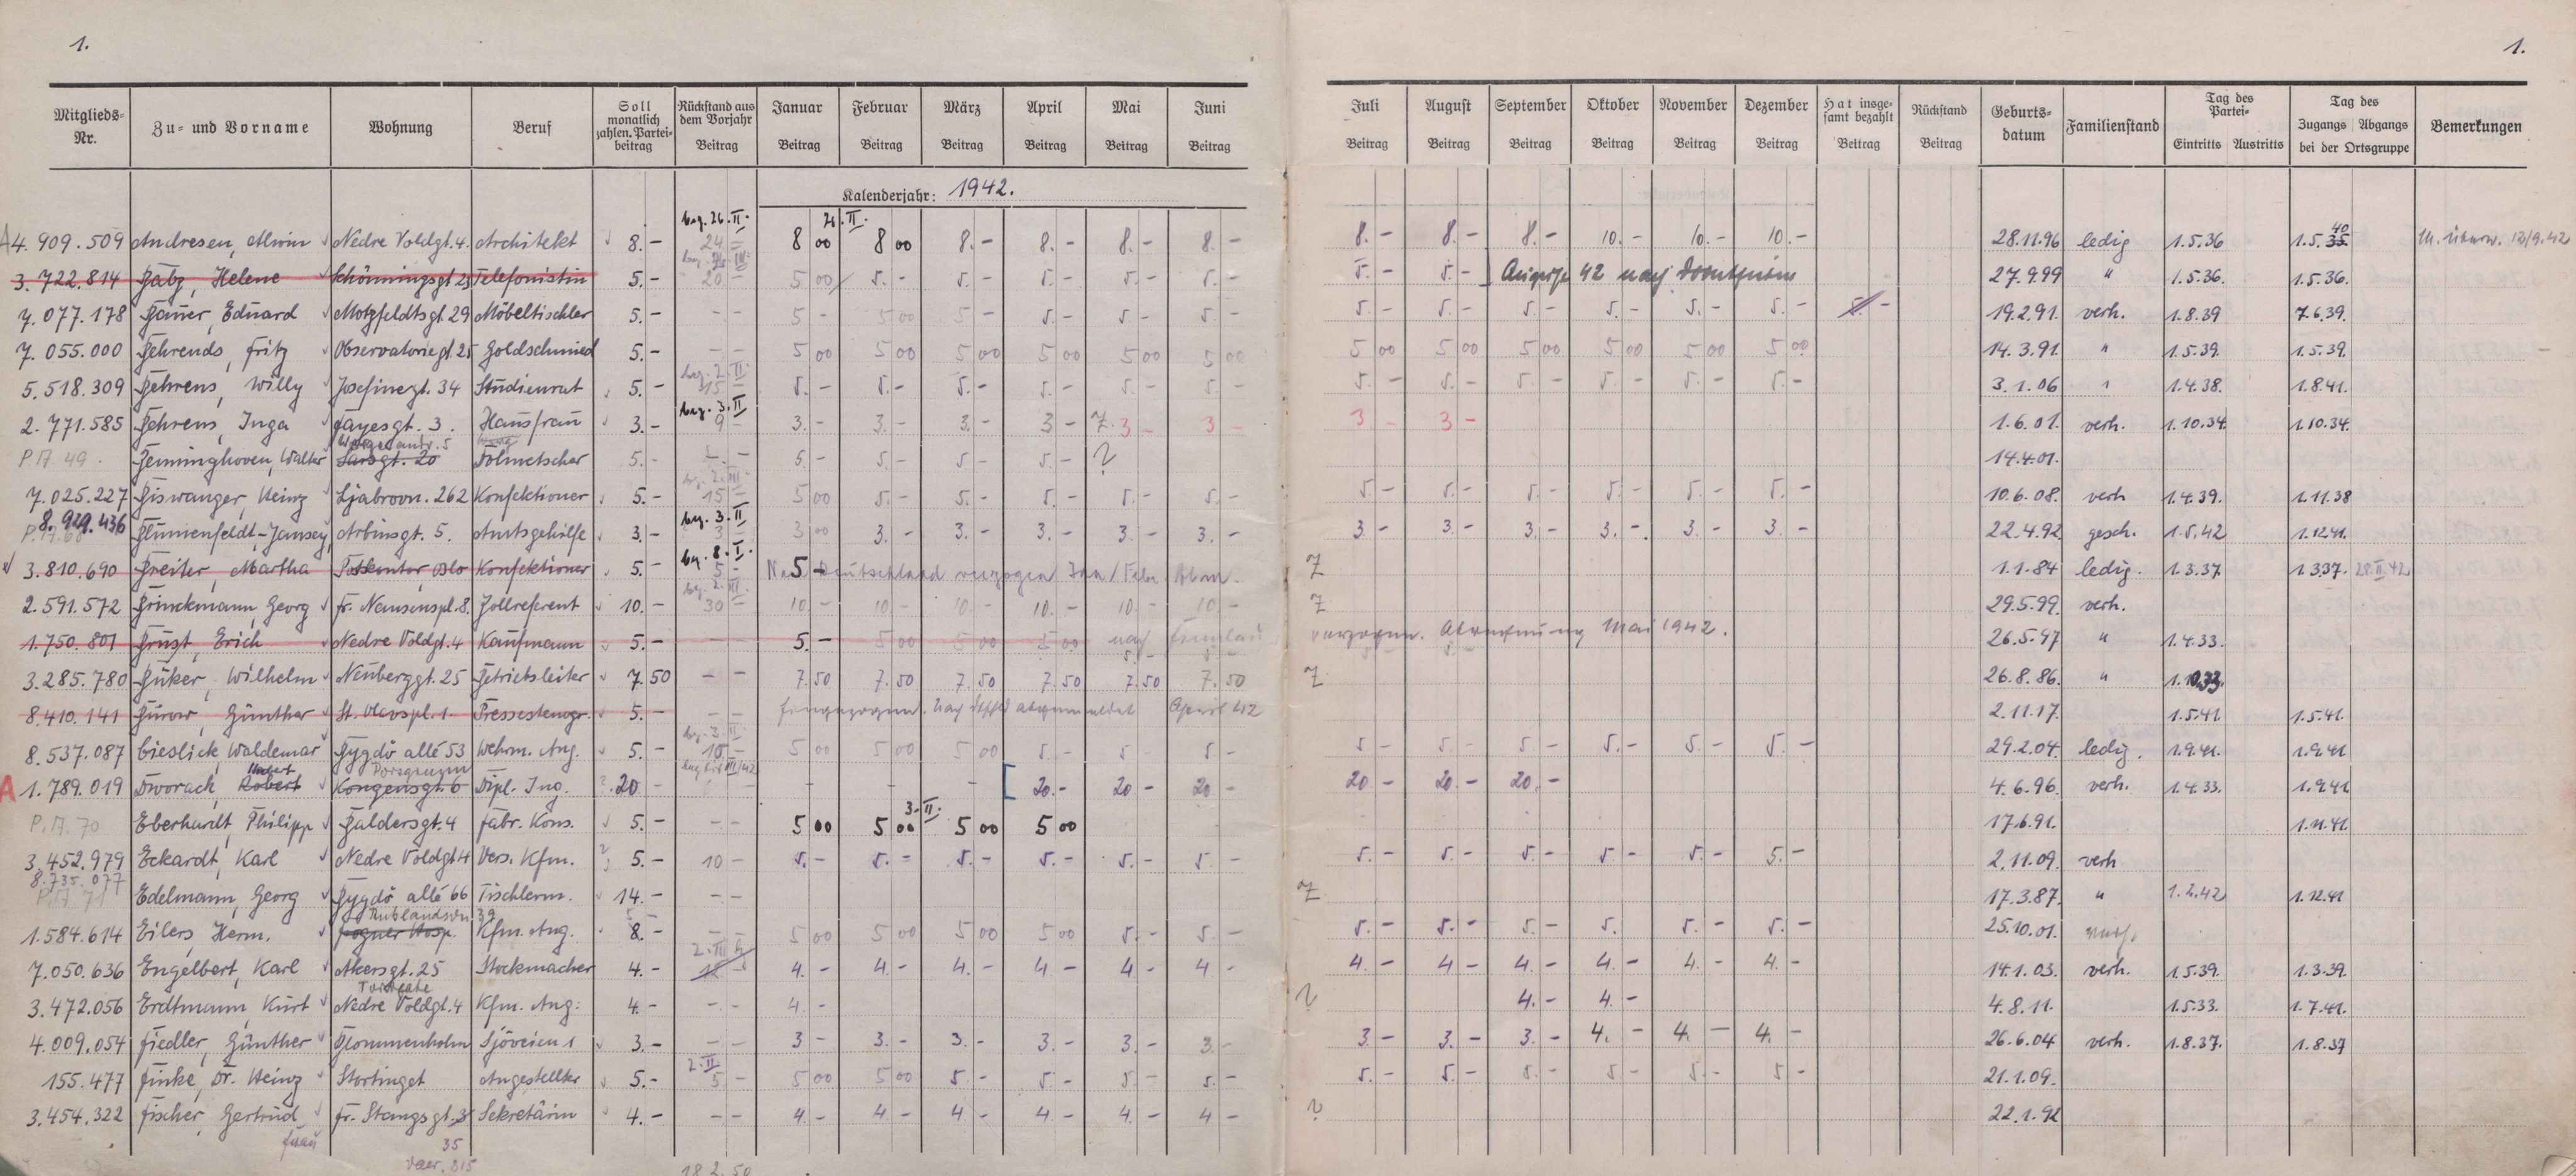 1.
1.
Mitglieds-Nr. Zu- und Vorname Wohnung Beruf Soll monatlich zahlen. Parteibeitrag Rückstand aus dem Vorjahr Beitrag Januar Beitrag Februar Beitrag März Beitrag April Beitrag Mai Beitrag Juni Beitrag Juli Beitrag August Beitrag September Beitrag Oktober Beitrag November Beitrag Dezember Beitrag Hat insgesamt bezahlt Beitrag Rückstand Beitrag Geburtsdatum Familienstand Tag des Partei- Eintritts Austritts Tag des Zugangs Abgangs bei der Ortsgruppe Bemerkungen
Kalenderjahr: 1942.
bez. 26. II.
A 4.909.509 Andresen, Alwin Nedre Voldgt. 4. Architekt 8.- 24 - 8 00 8 00 8.- 8.- 8.- 8.- 8.- 8.- 8.- 10.- 10.- 10.- 28.11.96 ledig 1.5.36 1.5. 40 12/9.42
3.722.814 Babz, Helene Schönningsgt 25 Telefonistin 5.- 20 5 00 5.- 5.- 5.- 5.- 5.- 5.- 5.- August 42 nach Drontheim 27.9.99 " 1.5.36. 1.5.36.
7.077.178 Bauer, Eduard Motzfeldtsgt. 29 Möbeltischler 5.- - - 5 - 5 00 5 - 5.- 5.- 5.- 5.- 5.- 5.- 5.- 5.- 5.- 5.- 19.2.91. verh. 1.8.39 7.6.39.
7.055.000 Behrends, Fritz Observatoriegt 25 Goldschmied 5.- - - 5 00 5 00 5 00 5 00 5 00 5 00 5 00 5 00 5 00 5 00 5 00 5 00 14.3.91. " 1.5.39. 1.5.39.
bez. 2. II.
5.518.309 Behrens, Willy Josefinegt. 34 Studienrat 5.- 15 - 5.- 5.- 5.- 5.- 5.- 5.- 5.- 5.- 5.- 5.- 5.- 5.- 3.1.06 " 1.4.38. 1.8.41.
bez. 3. II
2.771.585 Behrens, Inga Fayesgt. 3. Hausfrau 3.- 9 - 3.- 3.- 3.- 3 - 3 - 3 - 3 - 3 - 1.6.01. verh. 1.10.34. 1.10.34.
P.A. 49. Benninghoven, Walter Sarsgt. 20 Dolmetscher 5.- 5 - 5.- 5 - 5.- ? 14.4.01.
7.025.227 Biswanger, Heinz Ljabrovn. 262 Konfektioner 5.- 15 - 5 00 5.- 5.- 5.- 5.- 5.- 5.- 5.- 5.- 5.- 5.- 5.- 10.6.08. verh 1.4.39. 1.11.38
bez. 3. II
8.929.436 Blumenfeldt-Jansen, Arbinsgt. 5. Amtsgehilfe 3.- 3 - 3 00 3.- 3.- 3.- 3.- 3.- 3 - 3.- 3.- 3.- 3.- 3.- 22.4.92 gesch. 1.5.42 1.12.41.
bez. 8. I.
3.810.690 Breiter, Martha Postkontor Oslo Konfektioner 5.- 5 - 5 - Nach Deutschland verzogen Jan/Febr. Abm. 1.1.84 ledig. 1.3.37 1.3.37. 28.II.42
2.591.572 Brinckmann, Georg Fr. Nansenspl. 8. Zollreferent 10.- 30 - 10.- 10.- 10.- 10.- 10.- 10.- 29.5.99. verh.
1.750.801 Brust, Erich Nedre Voldgt. 4 Kaufmann 5.- - - 5.- 5 00 5 00 5 00 nach Finnland verzogen. Abrechnung Mai 1942. 26.5.47 " 1.4.33.
3.285.780 Büker, Wilhelm Neuberggt. 25 Betriebsleiter 7.50 - - 7.50 7.50 7.50 7.50 7.50 7.50 26.8.86. " 1.10.33.
8.410.141 Burow, Günther St. Olavspl. 1. Pressestenogr. 5.- - - Eingezogen. abgemeldet April 42 2.11.17. 1.5.41. 1.5.41.
bez. 3. II.
8.537.087 Cieslick, Waldemar Bygdö allé 53 Wehrm. Ang. 5.- 10 - 5 00 5 00 5 00 5.- 5 - 5.- 5 - 5.- 5 - 5.- 5.- 5.- 29.2.04. ledig. 1.9.41. 1.9.41
A 1.789.019 Dworach, Robert Kongensgt. 6 Dipl. Ing. 20 - - - - 20.- 20 - 20 - 20 - 20 - 20.- 4.6.96. verh. 1.4.33. 1.9.41
3. II.
P.A. 70 Eberhardt, Philipp Baldersgt. 4 Fabr. Kons. 5.- - - 5 00 5 00 5 00 5 00 17.6.91. 1.11.41.
3.452.979 Eckardt, Karl Nedre Voldgt 4 Vers. Kfm. 5.- 10 - 5.- 5.- 5.- 5.- 5.- 5.- 5.- 5.- 5.- 5.- 5.- 5.- 2.11.09. verh
8.735.077
P.A. 71 Edelmann, Georg Bygdö allé 66 Tischlerm. 14.- - - 17.3.87. " 1.2.42 1.12.41
1.584.614 Eilers, Herm. Kfm. Ang. 8.- - - 5 00 5 00 5 00 5 00 5.- 5.- 5.- 5.- 5.- 5. 5.- 5.- 25.10.01.
7.050.636 Engelbert, Karl Akersgt. 25 Stockmacher 4.- 4.- 4.- 4.- 4.- 4.- 4.- 4.- 4.- 4.- 4.- 4.- 4.- 14.1.03. verh. 1.5.39. 1.3.39.
3.472.056 Erdtmann, Kurt Nedre Voldgt. 4 Kfm. Ang: 4.- - - 4.- ? 4.- 4.- 4.8.11. 1.5.33. 1.7.41.
4.009.054 Fiedler, Günther Blommenholm Sjöveien 1 3.- - - 3 - 3.- 3.- 3.- 3.- 3.- 3.- 3.- 3.- 4.- 4.- 4.- 26.6.04 verh. 1.8.37. 1.8.37
2. II
155.477 Finke, Dr. Heinz Stortinget Angestellter 5.- 5 - 5 00 5 00 5.- 5.- 5.- 5.- 5.- 5.- 5.- 5 - 5.- 5 - 21.1.09.
3.454.322 Fischer, Gertrud Fr. Stangsgt. Sekretärin 4.- - - 4.- 4.- 4.- 4.- 4.- 4.- ? 22.1.92
Frau 35
18 2. 50